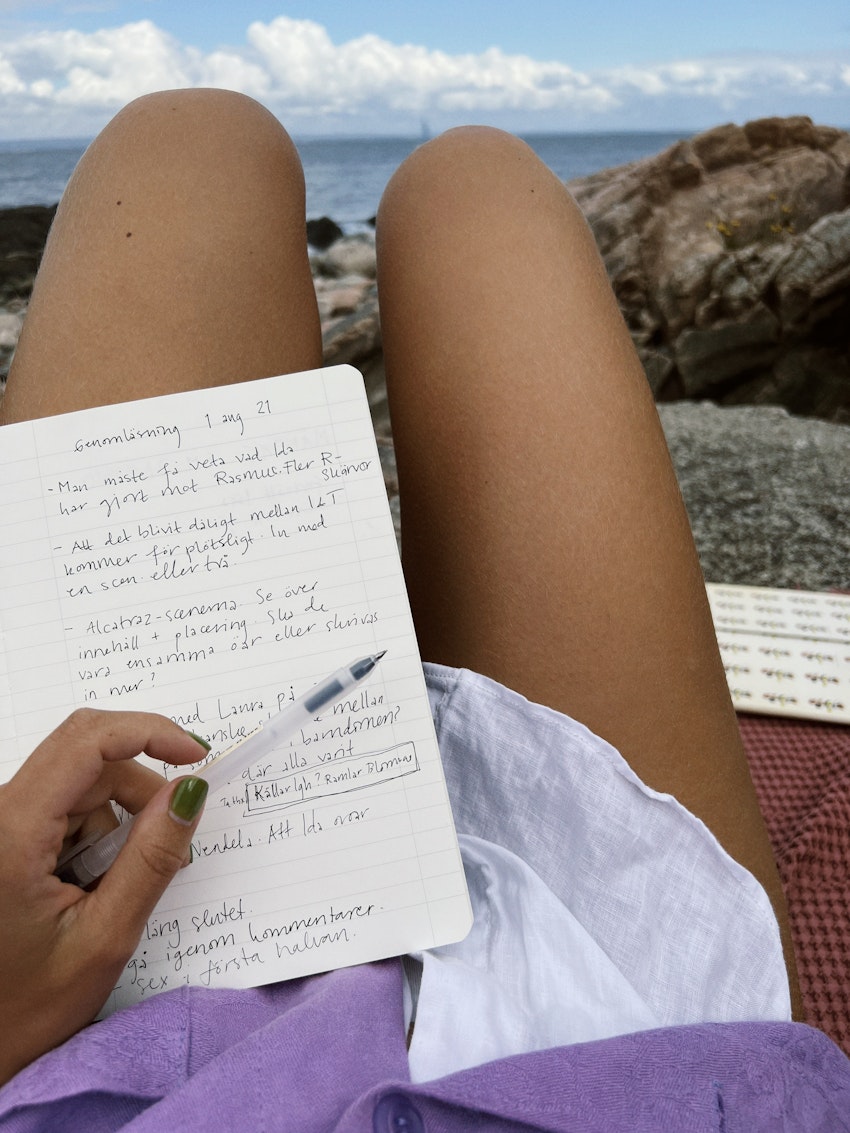 Genomläsning 1 aug 21
- Man måste få veta vad Ida
har gjort mot Rasmus. Fler R-
skärvor
- Att det blivit dåligt mellan I & T
kommer för plötsligt. In med
en scen eller två.
- Alcatraz-scenerna. Se över
innehåll + placering. Ska de
vara ensamma öar eller skrivas
in mer?
med Laura på
kanske mellan
på som i barndomen?
där alla varit
Källarlgh? Ramlar
Vendela. Att Ida ovar
läng slutet.
gå igenom kommentarer.
- Sex i första halvan.